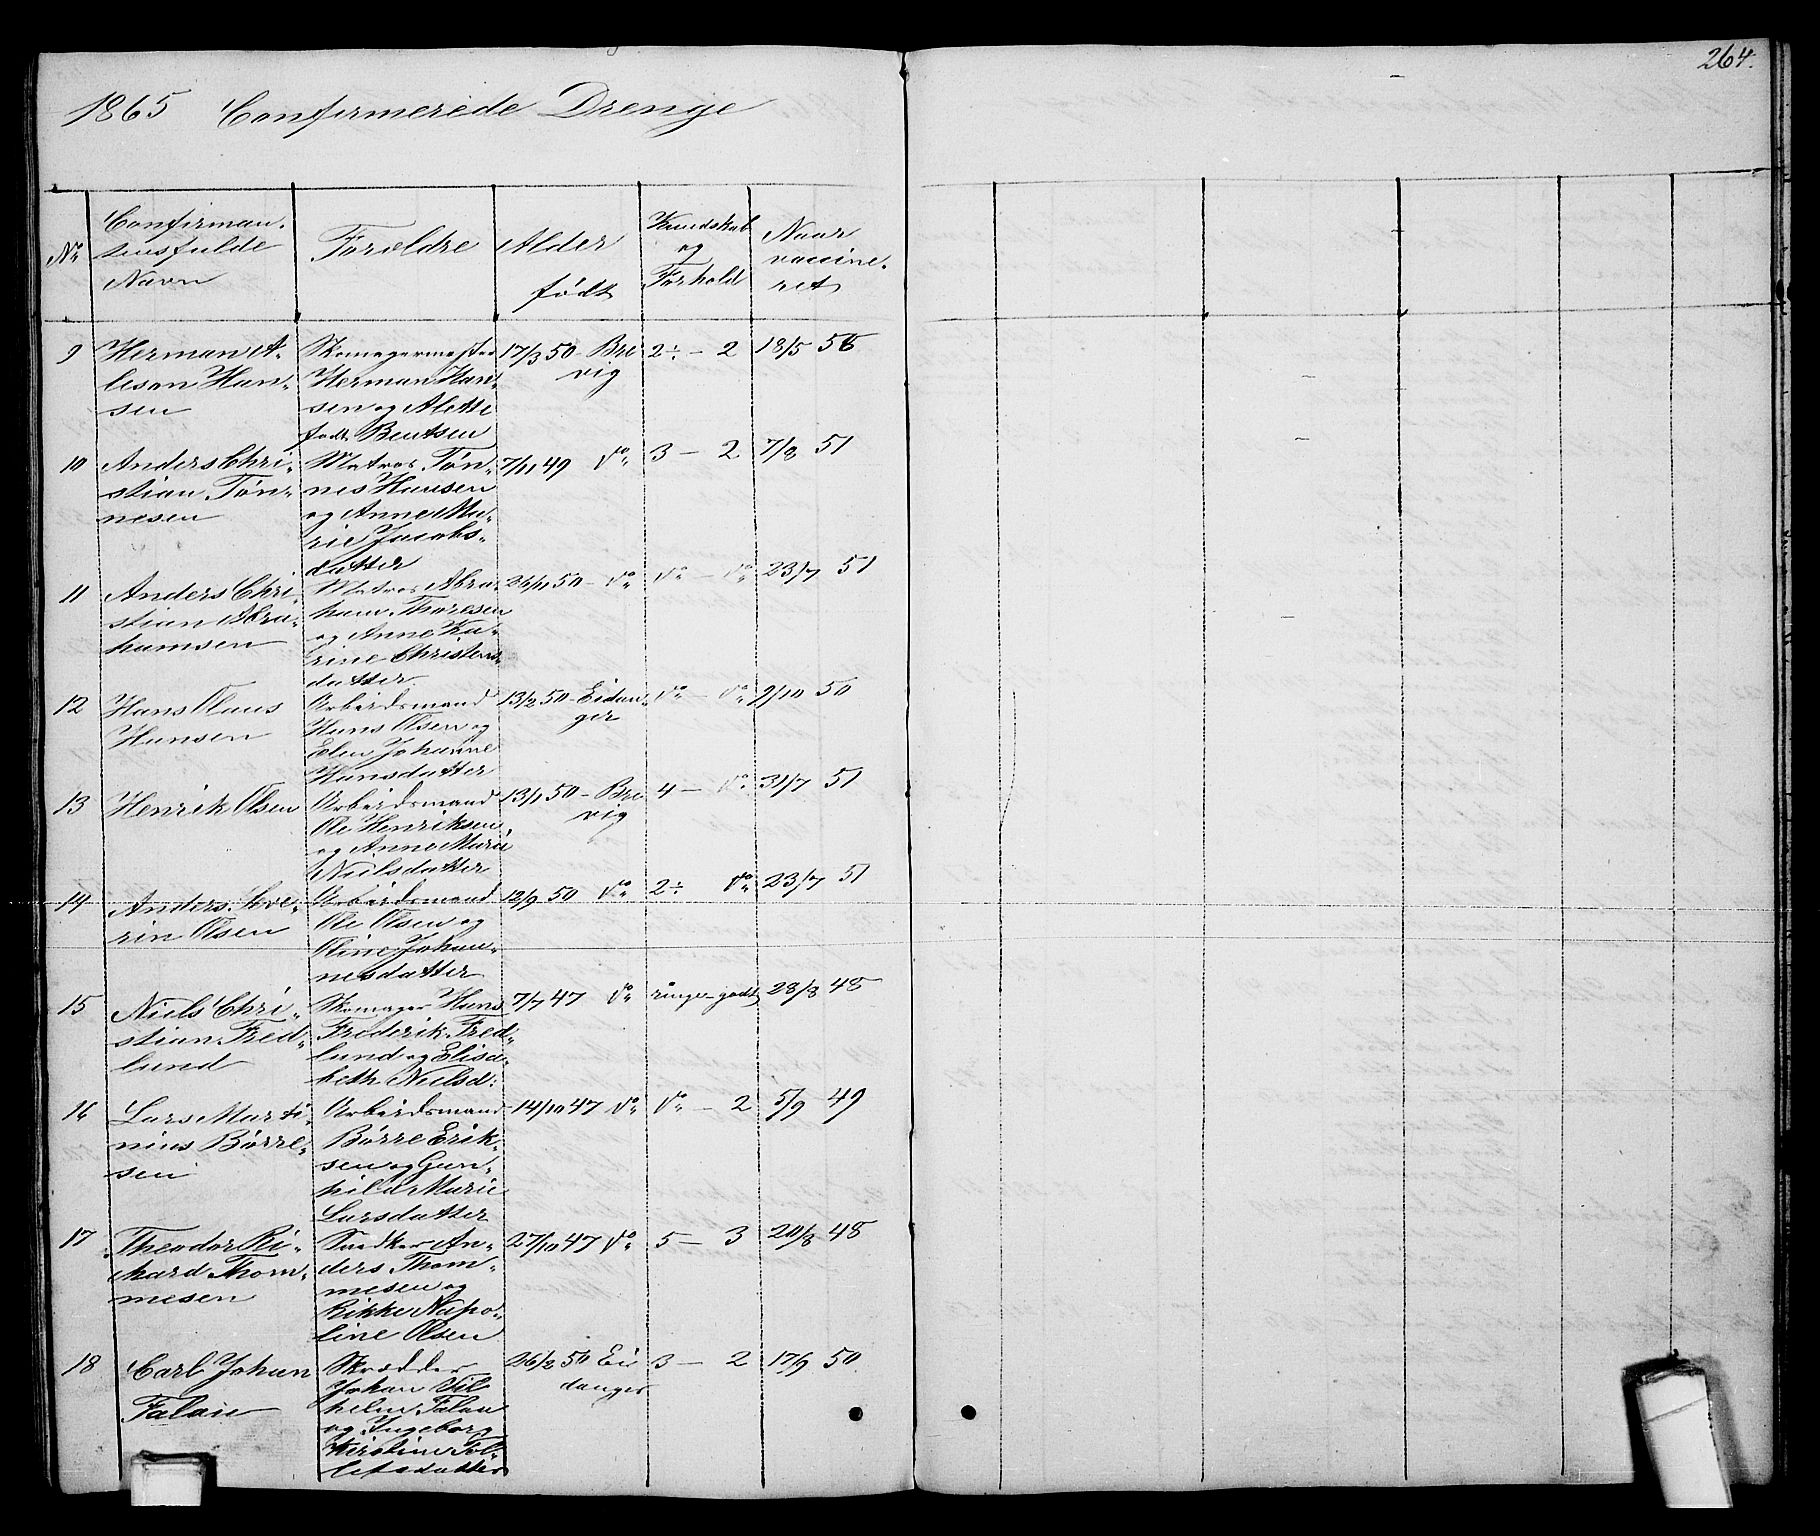 264.
1865 Confirmerede Drenge
No
Confirman-
tens fulde
Navn
Forældre
Alder
født
Kundskab
og
Forhold
Naar
vaccine-
ret
9 Herman A-
leson Han-
sen
Skomagermester
Herman Han-
sen og Alette
født Bentsen
17/3 50 - Bre
vig
2÷ - 2
18/5 56
10 Anders Chri-
stian Tøn-
nesen
Matros Tøn-
nes Hansen
og Anne Ma-
rie Jacobs-
datter
7/11 49 do
3 - 2
7/8 51
11 Anders Chri-
stian Abra-
hamsen
Matros Abra-
ham Thoresen
og Anne Ka-
rine Christens-
datter
26/11 50 - do
do - do
23/7 51
12 Hans Olaus
Hansen
Arbeidsmand
Hans Olsen og
Elen Johanne
Hansdatter
13/2 50 - Eidan-
ger
do - do
2/10 50
13 Henrik Olsen
Arbeidsmand
Ole Henriksen
og Anne Marie
Nielsdatter
13/1 50 - Bre
vig
4 - do
31/7 51
14 Anders Seve-
rin Olsen
Arbeidsmand
Ole Olsen og
Oline Johan-
nesdatter
12/9 50 do
2÷ do
23/7 51
15 Niels Chri-
stian Fred-
lund
Skomager Hans
Frederik Fred-
lund og Elisa-
beth Nielsd:
7/7 47 do
ringe - godt
28/8 48
16 Lars Marti-
nius Børre-
sen
Arbeidsmand
Børre Erik-
sen og Gun-
hild Marie
Larsdatter
14/10 47 do
do - 2
5/9 49
17 Theodor Ri-
chard Thom-
mesen
Snedker An-
ders Thom-
mesen og
Rikke Napo-
line Olsen
27/10 47 do
5 - 3
20/8 48
18 Carl Johan
Falan
Skrædder
Johan Vil
helm Falan
og Ingeborg
Kirstine Tol-
lefsdatter
26/2 50 Ei
danger
3 - 2
17/9 50